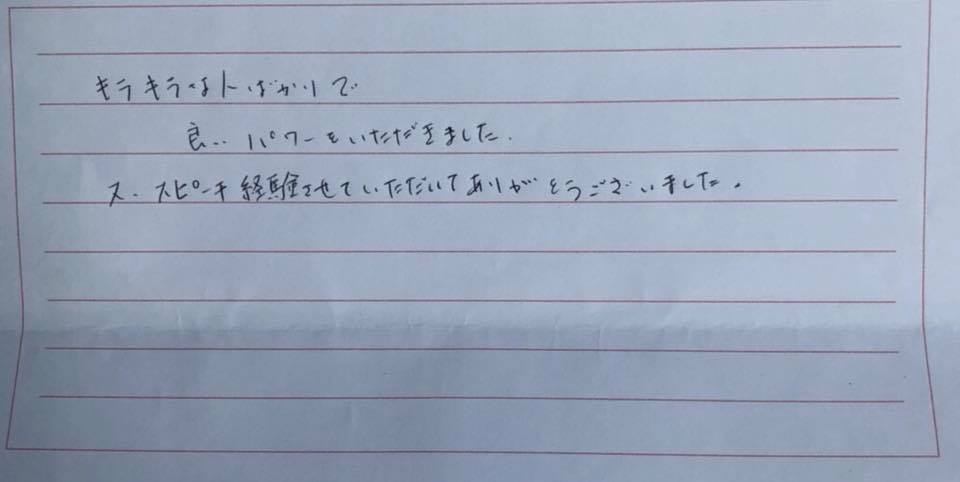 キラキラな人ばかりで
良い パワーをいただきました.
又. スピーチ経験させていただいてありがとうございました.